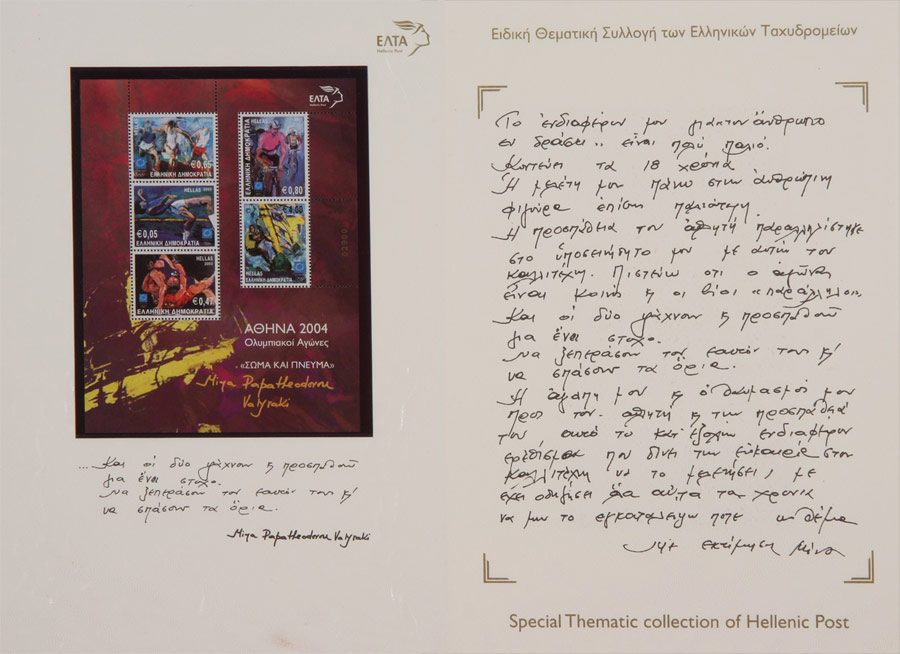 ΕΛΤΑ
Hellenic Post
ΕΛΤΑ
Hellenic Post
HELLAS
€0,65
ΕΛΛΗΝΙΚΗ ΔΗΜΟΚΡΑΤΙΑ
HELLAS 2003
€0,05
ΕΛΛΗΝΙΚΗ ΔΗΜΟΚΡΑΤΙΑ
HELLAS
2003
€0,47
ΕΛΛΗΝΙΚΗ ΔΗΜΟΚΡΑΤΙΑ
HELLAS
ΕΛΛΗΝΙΚΗ ΔΗΜΟΚΡΑΤΙΑ
€0,80
HELLAS
ΕΛΛΗΝΙΚΗ ΔΗΜΟΚΡΑΤΙΑ
ΑΘΗΝΑ 2004
Ολυμπιακοί Αγώνες
«ΣΩΜΑ ΚΑΙ ΠΝΕΥΜΑ»
Mina Papatheodorou
Valyraki
...Και οι δύο ψάχνουν & προσπαθούν
για ένα στόχο.
Να ξεπεράσουν τον εαυτόν τους &
να σπάσουν τα όρια.
Mina Papatheodorou Valyraki
Ειδική Θεματική Συλλογή των Ελληνικών Ταχυδρομείων
Το ενδιαφέρον μου για τον άνθρωπο
εν δράσει.. είναι πολύ παλιό.
τα 18 χρόνια
Η μελέτη μου πάνω στην ανθρώπινη
φιγούρα επίσης παλιότερη.
Η προσπάθεια του αθλητή παραλληλίστηκε
στο υποσυνείδητο μου με αυτήν του
καλλιτέχνη. Πιστεύω οτι ο αγώνας
είναι κοινός & οι βίοι «παράλληλοι».
Και οι δύο ψάχνουν & προσπαθούν
για ένα στόχο.
Να ξεπεράσουν τον εαυτόν τους &
να σπάσουν τα όρια.
Η αγάπη μου & ο θαυμασμός μου
προς τον αθλητή & την προσπάθειά
του αυτό το κατ' εξοχήν ενδιαφέρον
ερέθισμα που δίνει την ευκαιρία στον
καλλιτέχνη να το μελετήσει, με
έχει οδηγήσει όλα αυτά τα χρόνια
να μην το εγκαταλείψω ποτέ ως θέμα
Με εκτίμηση Μίνα
Special Thematic collection of Hellenic Post